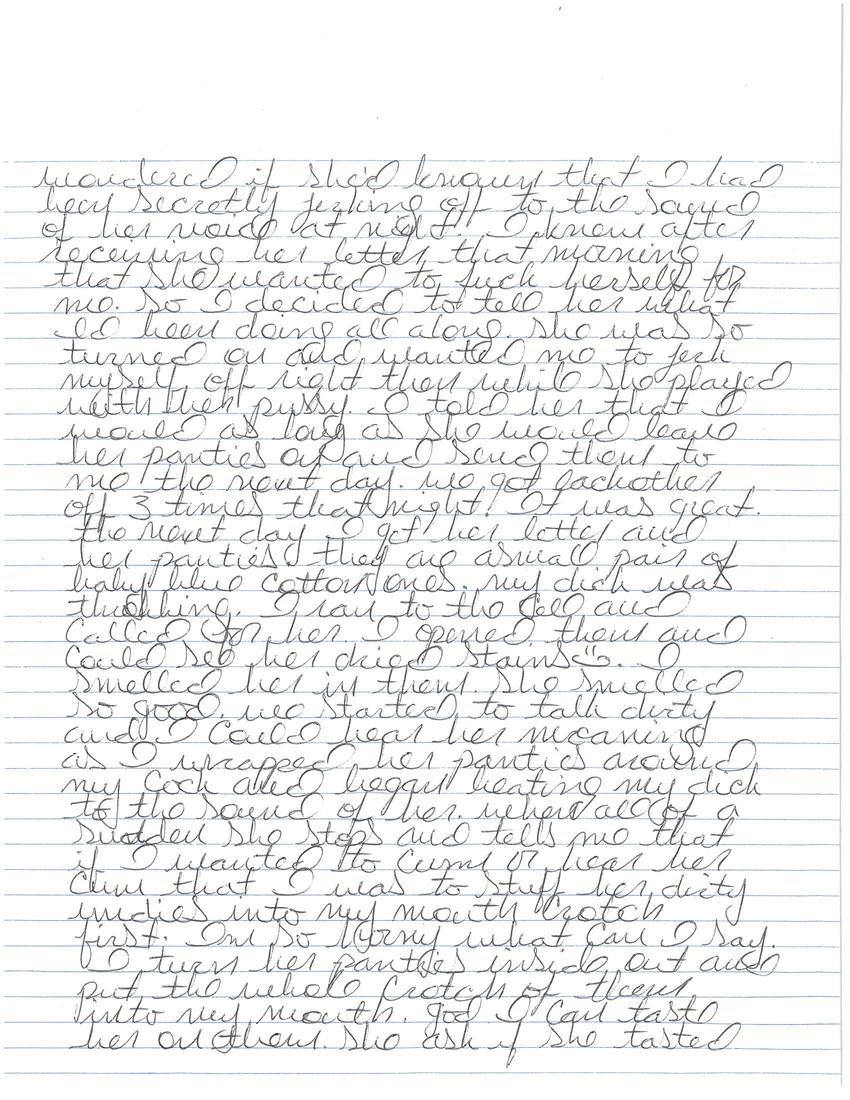 wondered if she'd known that I had
been secretly jerking off to the sound
of her voice at night. I knew after
receiving her letter that morning
that she wanted to fuck herself for
me. So I decided to tell her what
I'd been doing all along. She was so
turned on and wanted me to jerk
myself off right then while she played
with her pussy. I told her that I
would as long as she would leave
her panties on and send them to
me the next day. We got eachother
off 3 times that night! It was great.
The next day I got her letter and
her panties! they are a small pair of
baby blue cotton ones. my dick was
throbbing. I ran to the cell and
called for her. I opened them and
could see her dried stains. I
smelled her in them. She smelled
so good. we started to talk dirty
and I could hear her moaning
as I wrapped her panties around
my cock and began beating my dick
to the sound of her. when all of a
sudden she stops and tells me that
if I wanted to cum or hear her
cum that I was to stuff her dirty
undies into my mouth crotch
first. Im so horny what can I say.
I turn her panties inside out and
put the whole crotch of them
into my mouth. god I can taste
her on them. She ask if she tasted